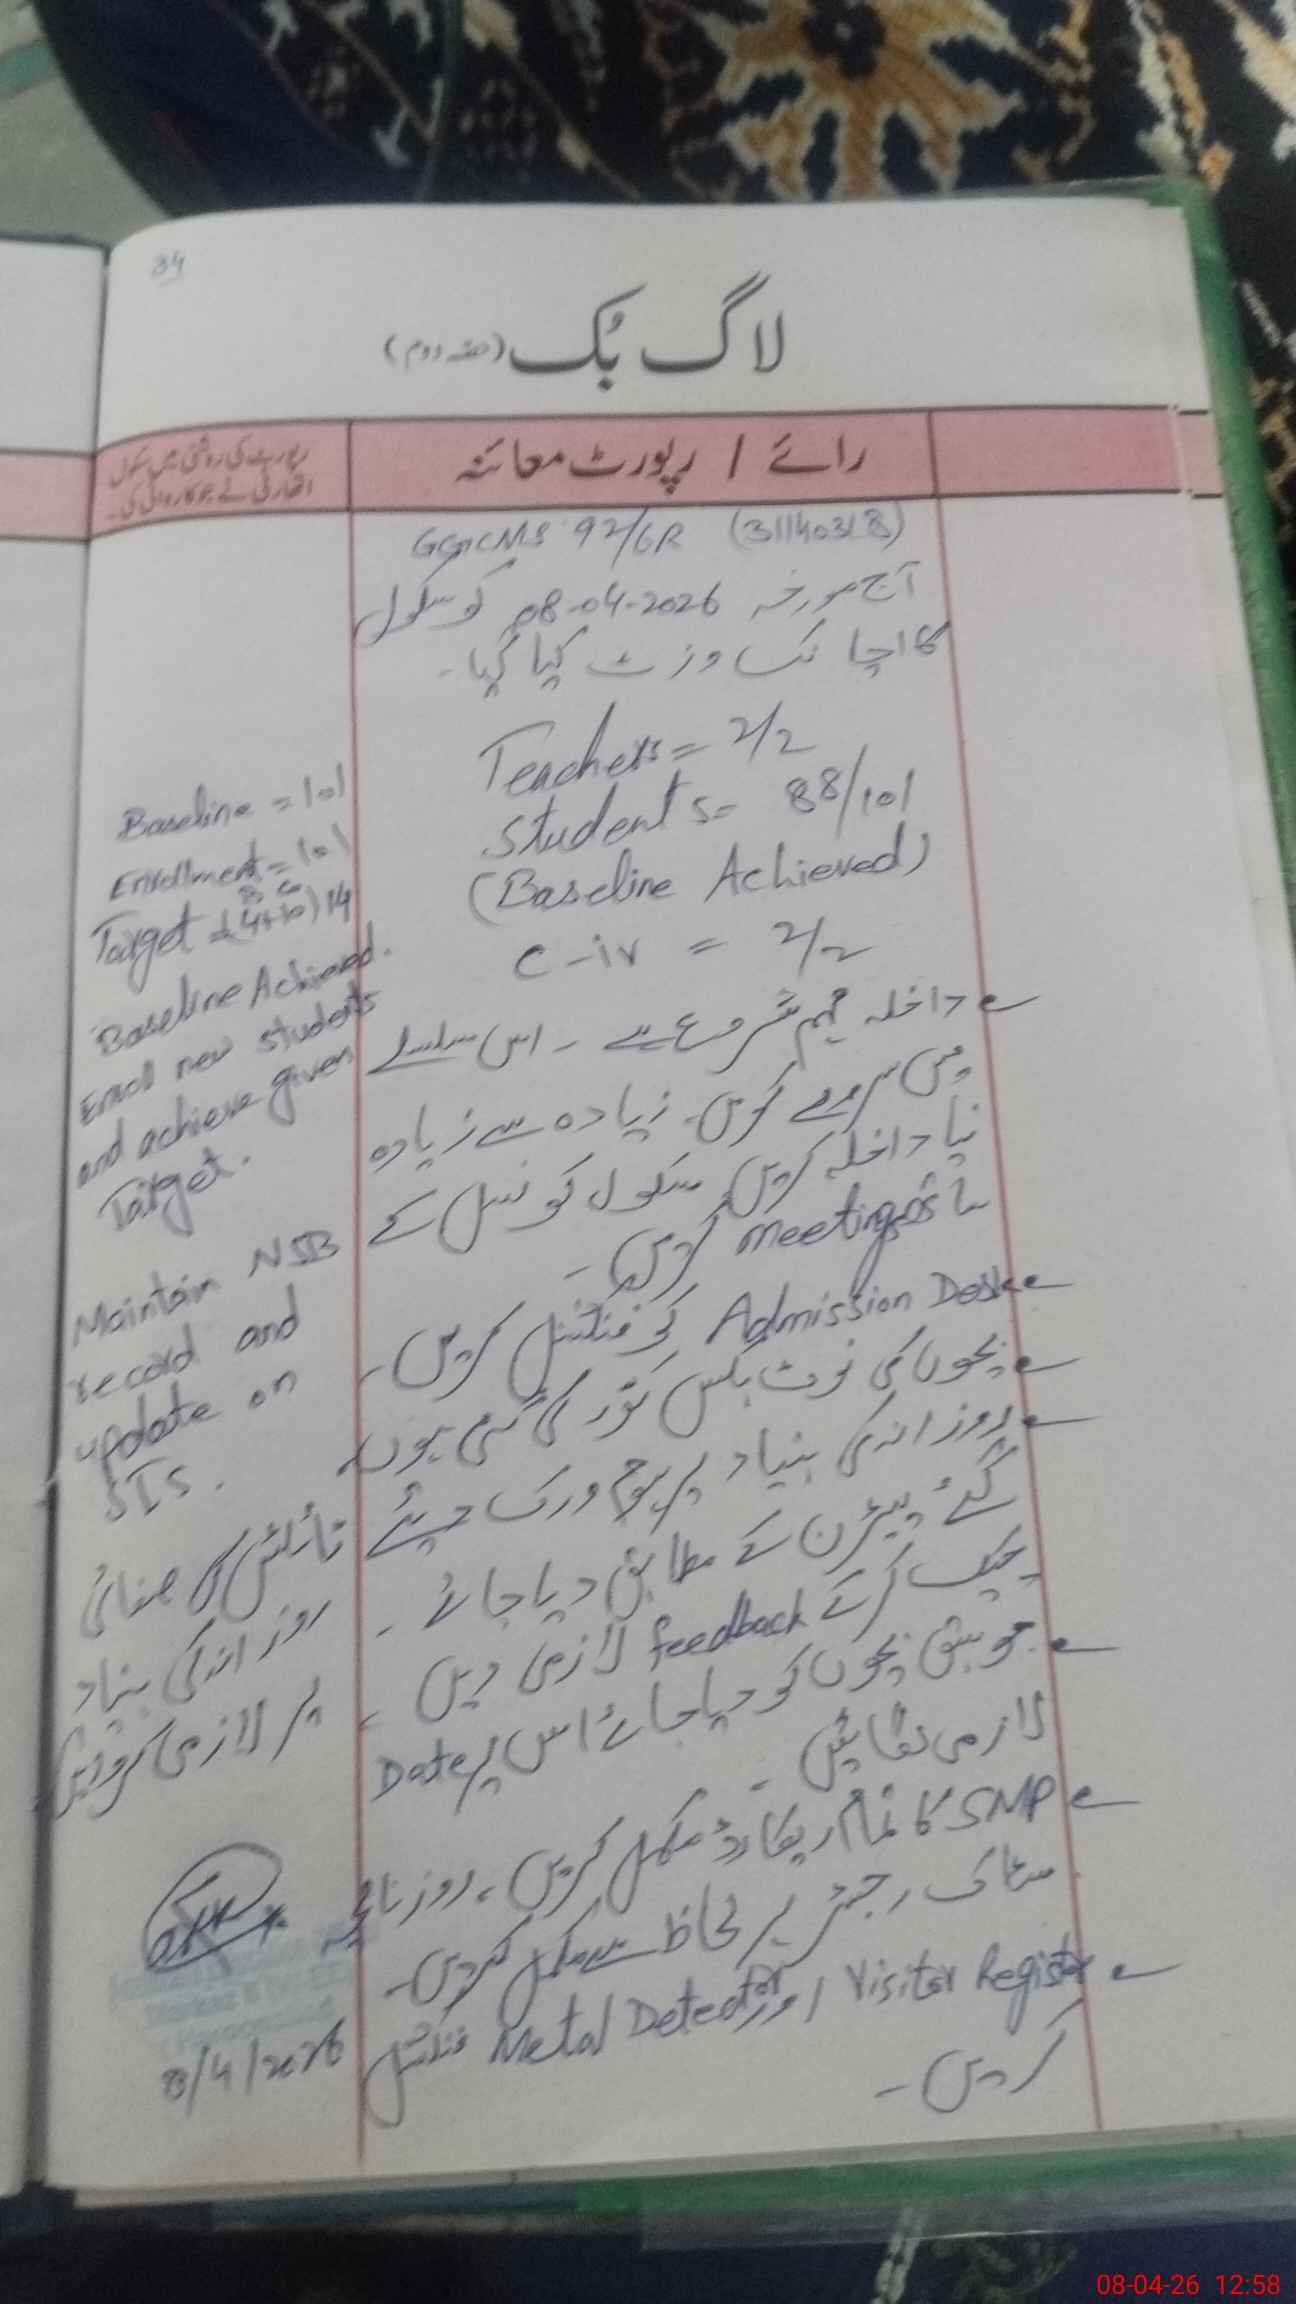 34
لاگ بُک (حصہ دوم)
رائے / رپورٹ معائنہ
رپورٹ کی روشنی میں سکول
اتھارٹی نے جو کارروائی کی۔
GGCMS 92/6R (31140318)
آج مورخہ 08-04-2026 کو سکول
کا اچانک وزٹ کیا گیا۔
Teachers = 2/2
Students = 88/101
(Baseline Achieved)
C-iv = 2/2
داخلہ مہم شروع ہے۔ اس سلسلے
میں سروے کریں۔ زیادہ سے زیادہ
نیا داخلہ کریں۔ سکول کونسل کے
ساتھ Meetings کریں۔
Admission Desk کو فنکشنل کریں۔
بچوں کی نوٹ بکس کور کی گئی ہوں۔
روزانہ کی بنیاد پر ہوم ورک دیئے
گئے پیٹرن کے مطابق دیا جائے۔
چیک کرکے feedback لازمی دیں۔
جو سبق بچوں کو دیا جائے اس پر Date
لازمی لگائیں۔
SMP کا تمام ریکارڈ مکمل کریں۔ روزنامچہ
سٹاک رجسٹر ہر لحاظ سے مکمل کریں۔
Visitor Register اور Metal Detector فنکشنل
کریں۔
Baseline = 101
Enrollment = 101
B G
Target = (4+10) 14
Baseline Achieved.
Enroll new students
and achieve given
Target.
Maintain NSB
record and
update on
SIS.
ٹائلٹس کی صفائی
روزانہ کی بنیاد
پر لازمی کروائیں
8/4/2026
08-04-26 12:58